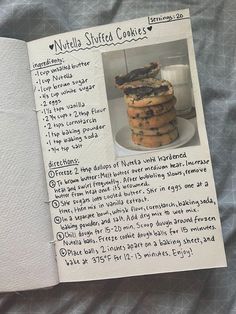 Servings: 20
Nutella Stuffed Cookies
ingredients:
-1 cup unsalted butter
-1 cup Nutella
-1 cup brown sugar
-3/4 cup white sugar
-2 eggs
-1 1/2 tsp vanilla
-2 3/4 cup + 2 tbsp flour
-2 tsp cornstarch
-1 tsp baking powder
-1 tsp baking soda
-3/4 tsp salt
directions:
① Freeze 2 tbsp dollops of Nutella until hardened
② To brown butter: Melt butter over medium heat. Increase
heat and swirl frequently. After bubbling slows, remove
butter from heat once it's browned.
③ Mix sugars into cooled butter. Stir in eggs one at a
time, then mix in vanilla extract.
④ In a separate bowl, whisk flour, cornstarch, baking soda,
baking powder, and salt. Add dry mix to wet mix.
⑤ Chill dough for 15-20 min. Scoop dough around frozen
Nutella balls. Freeze cookie dough balls for 15 minutes.
⑥ Place balls 2 inches apart on a baking sheet, and
bake at 375°F for 12-13 minutes. Enjoy!